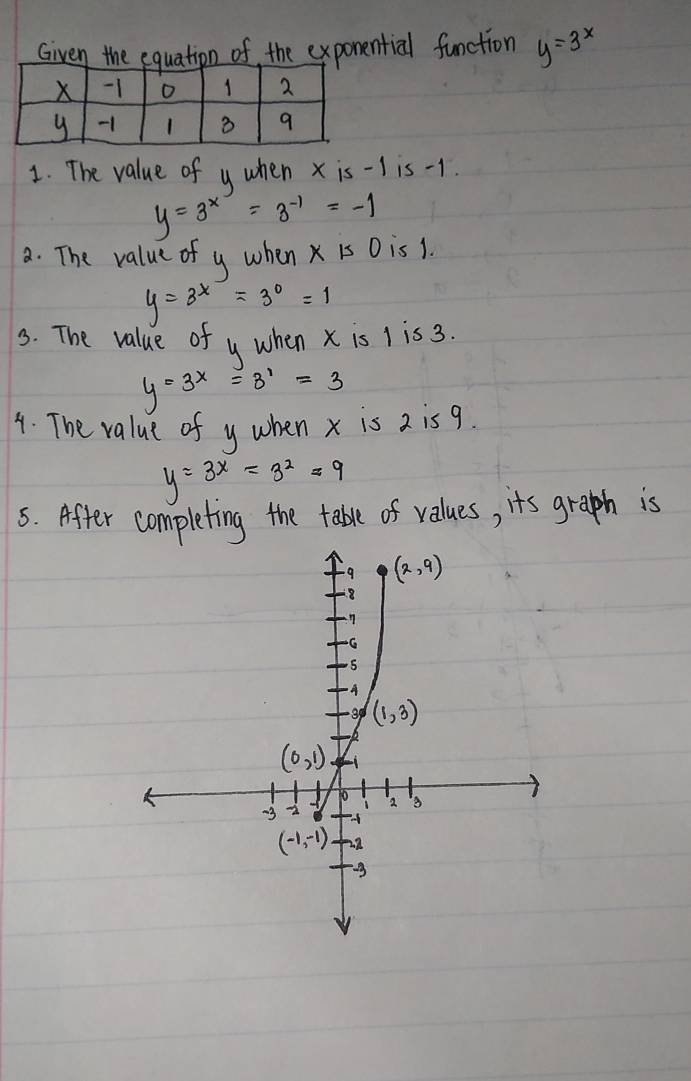 Given the equation of the exponential function y=3ˣ
x -1 0 1 2
y -1 1 3 9
1. The value of y when x is -1 is -1.
y = 3ˣ = 3⁻¹ = -1
2. The value of y when x is 0 is 1.
y = 3ˣ = 3⁰ = 1
3. The value of y when x is 1 is 3.
y = 3ˣ = 3¹ = 3
4. The value of y when x is 2 is 9.
y = 3ˣ = 3² = 9
5. After completing the table of values, its graph is
9 (2,9)
8
7
6
5
4
3 (1,3)
2
(0,1) 1
-3 -2 -1 0 1 2 3
-1
(-1,-1) -2
-3